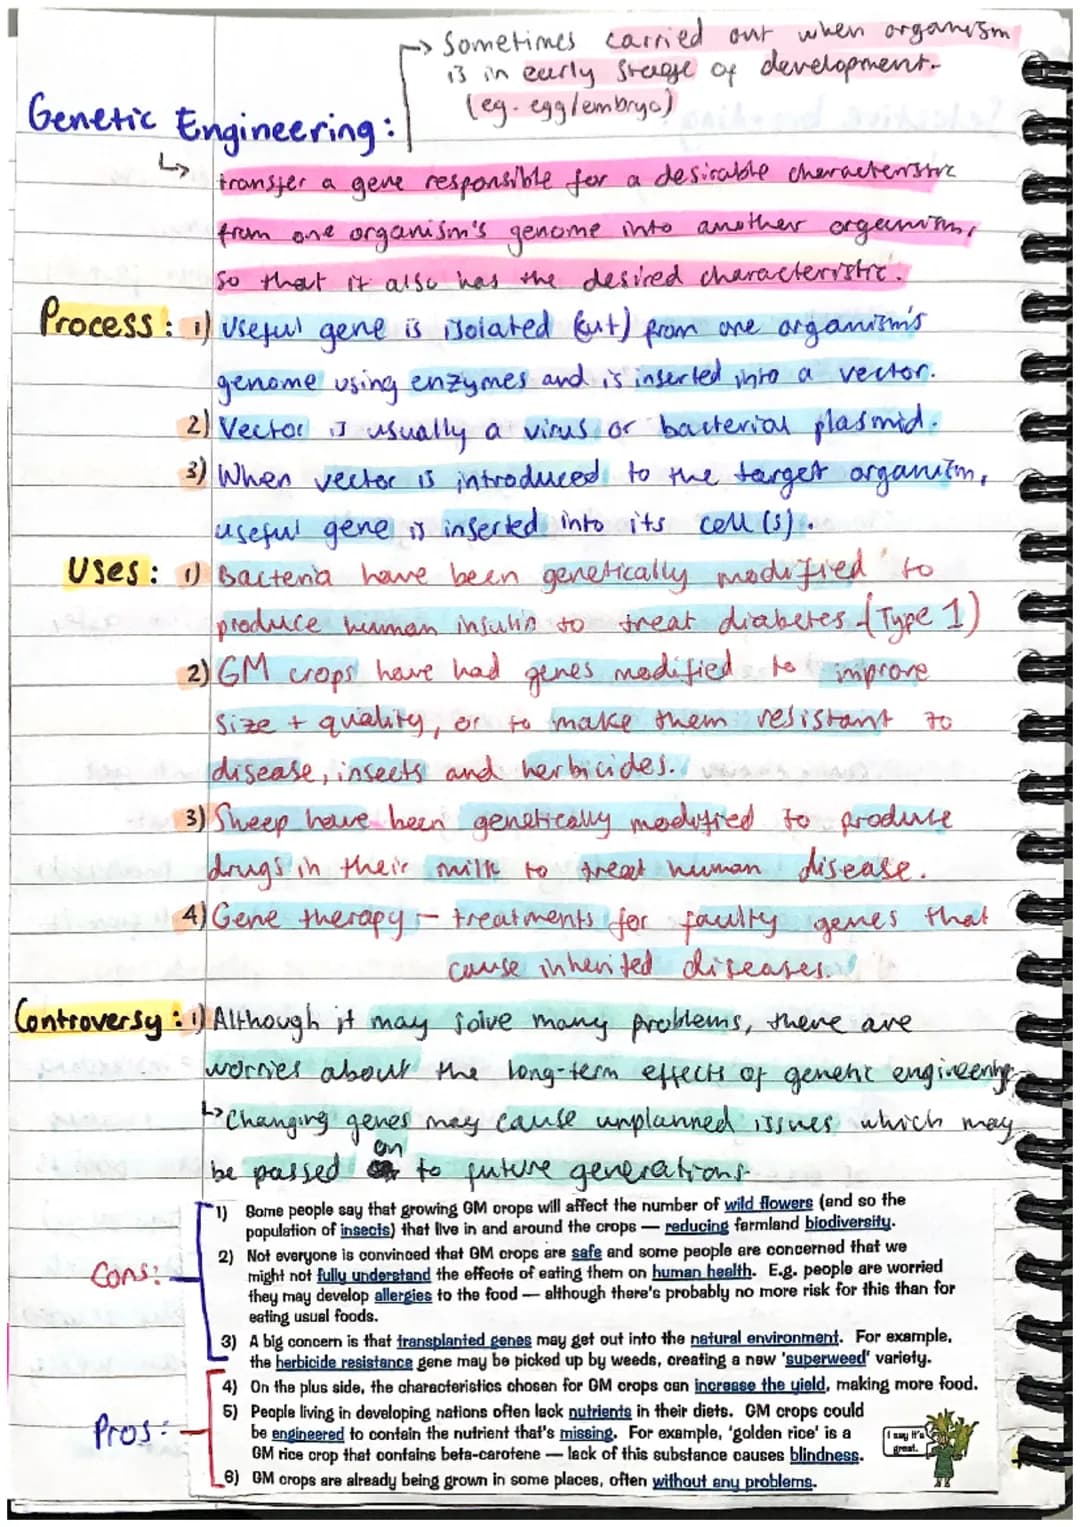 → Sometimes carried out when organism
is in early stage of development.
(eg. egg/embryo)
Genetic Engineering:
↳ transfer a gene responsible for a desirable characteristic
from one organism's genome into another organism,
so that it also has the desired characteristic.
Process: 1) Useful gene is isolated (cut) from one organism's
genome using enzymes and is inserted into a vector.
2) Vector is usually a virus or bacterial plasmid.
3) When vector is introduced to the target organism,
useful gene is inserted into its cell(s).
Uses: 1) Bacteria have been genetically modified to
produce human insulin to treat diabetes. (Type 1)
2) GM crops have had genes modified to improve
size + quality, or to make them resistant to
disease, insects and herbicides.
3) Sheep have been genetically modified to produce
drugs in their milk to treat human disease.
4) Gene therapy :- treatments for faulty genes that
cause inherited diseases.
Controversy: 1) Although it may solve many problems, there are
worries about the long-term effects of genetic engineering
↳ Changing genes may cause unplanned issues which may
be passed on to future generations.
Cons:
1) Some people say that growing GM crops will affect the number of wild flowers (and so the
population of insects) that live in and around the crops — reducing farmland biodiversity.
2) Not everyone is convinced that GM crops are safe and some people are concerned that we
might not fully understand the effects of eating them on human health. E.g. people are worried
they may develop allergies to the food — although there's probably no more risk for this than for
eating usual foods.
3) A big concern is that transplanted genes may get out into the natural environment. For example,
the herbicide resistance gene may be picked up by weeds, creating a new 'superweed' variety.
Pros:
4) On the plus side, the characteristics chosen for GM crops can increase the yield, making more food.
5) People living in developing nations often lack nutrients in their diets. GM crops could
be engineered to contain the nutrient that's missing. For example, 'golden rice' is a
GM rice crop that contains beta-carotene — lack of this substance causes blindness.
6) GM crops are already being grown in some places, often without any problems.
I say it's
great.